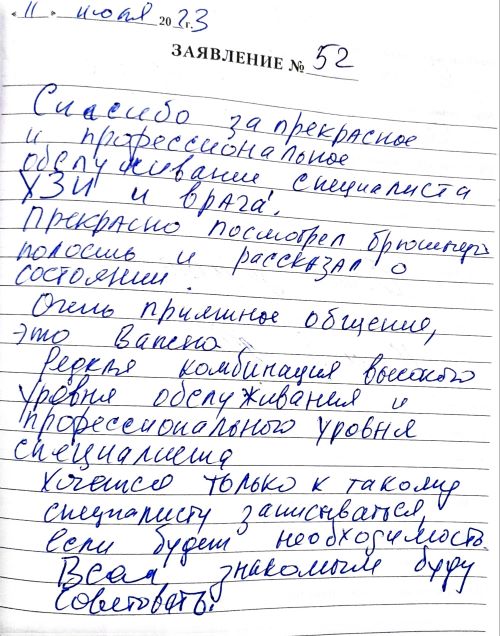 « 11 » июля 2023 г.
ЗАЯВЛЕНИЕ № 52
Спасибо за прекрасное
и профессиональное
обслуживание специалиста
УЗИ и врача!
Прекрасно посмотрел брюшную
полость и рассказал о
состоянии.
Очень приятное общение,
это важно
Редкая комбинация высокого
уровня обслуживания и
профессионального уровня
специалиста
Хочется только к такому
специалисту записываться,
если будет необходимость
Всем знакомым буду
советовать!